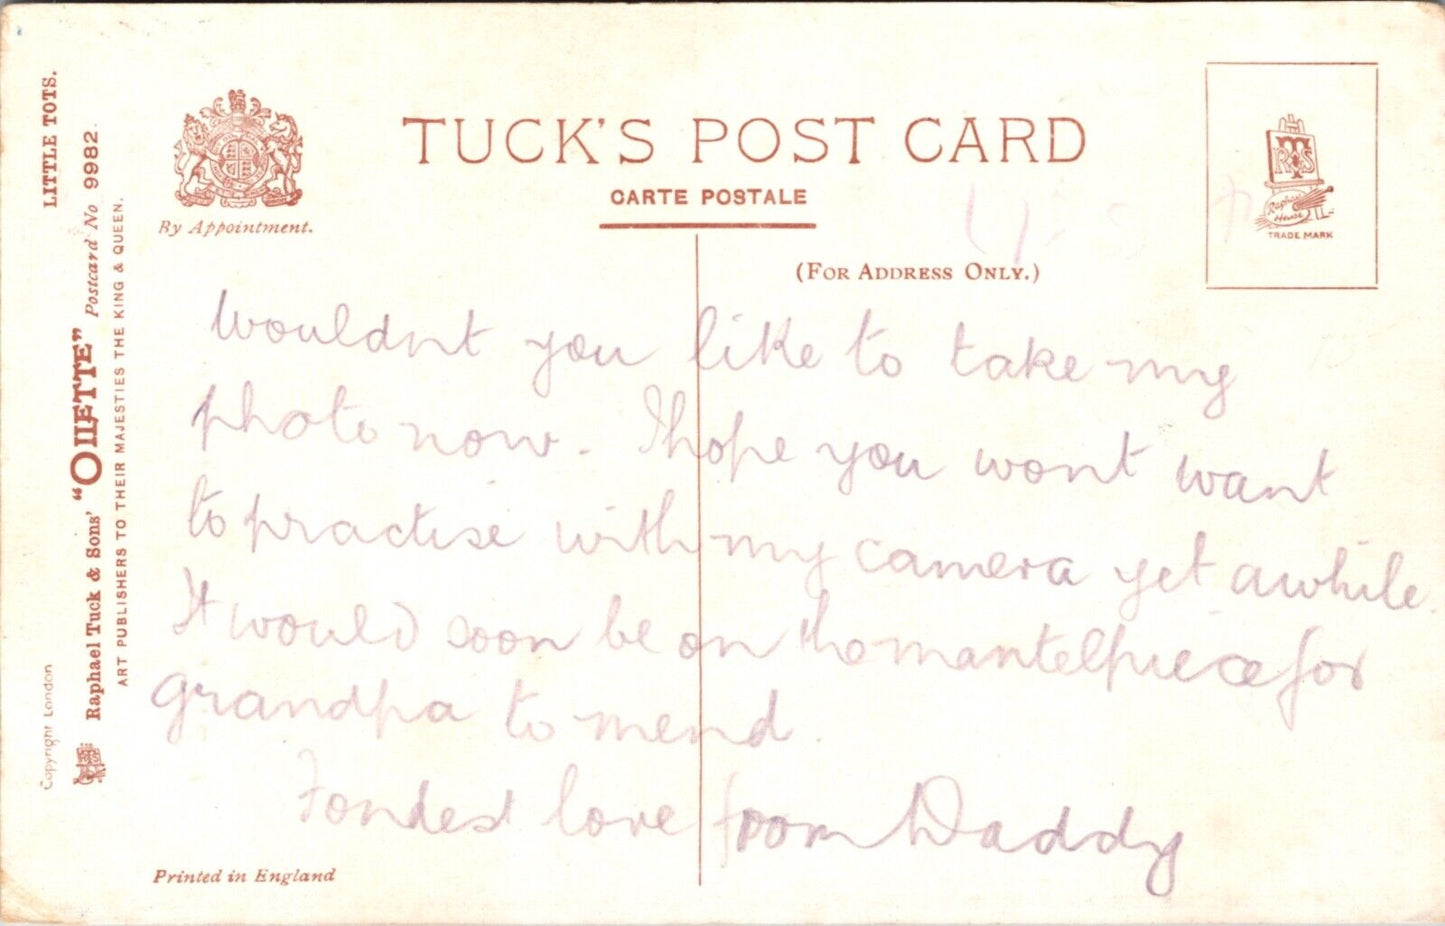 LITTLE TOTS.
Raphael Tuck & Sons' "OILETTE" Postcard No 9982.
ART PUBLISHERS TO THEIR MAJESTIES THE KING & QUEEN.
Copyright London
By Appointment.
TUCK'S POST CARD
CARTE POSTALE
(FOR ADDRESS ONLY.)
RTS
Raphael
House
TRADE MARK
Wouldnt you like to take my
photo now. I hope you wont want
to practise with my camera yet awhile.
It would soon be on the mantelpiece for
grandpa to mend.
Fondest love from Daddy
Printed in England